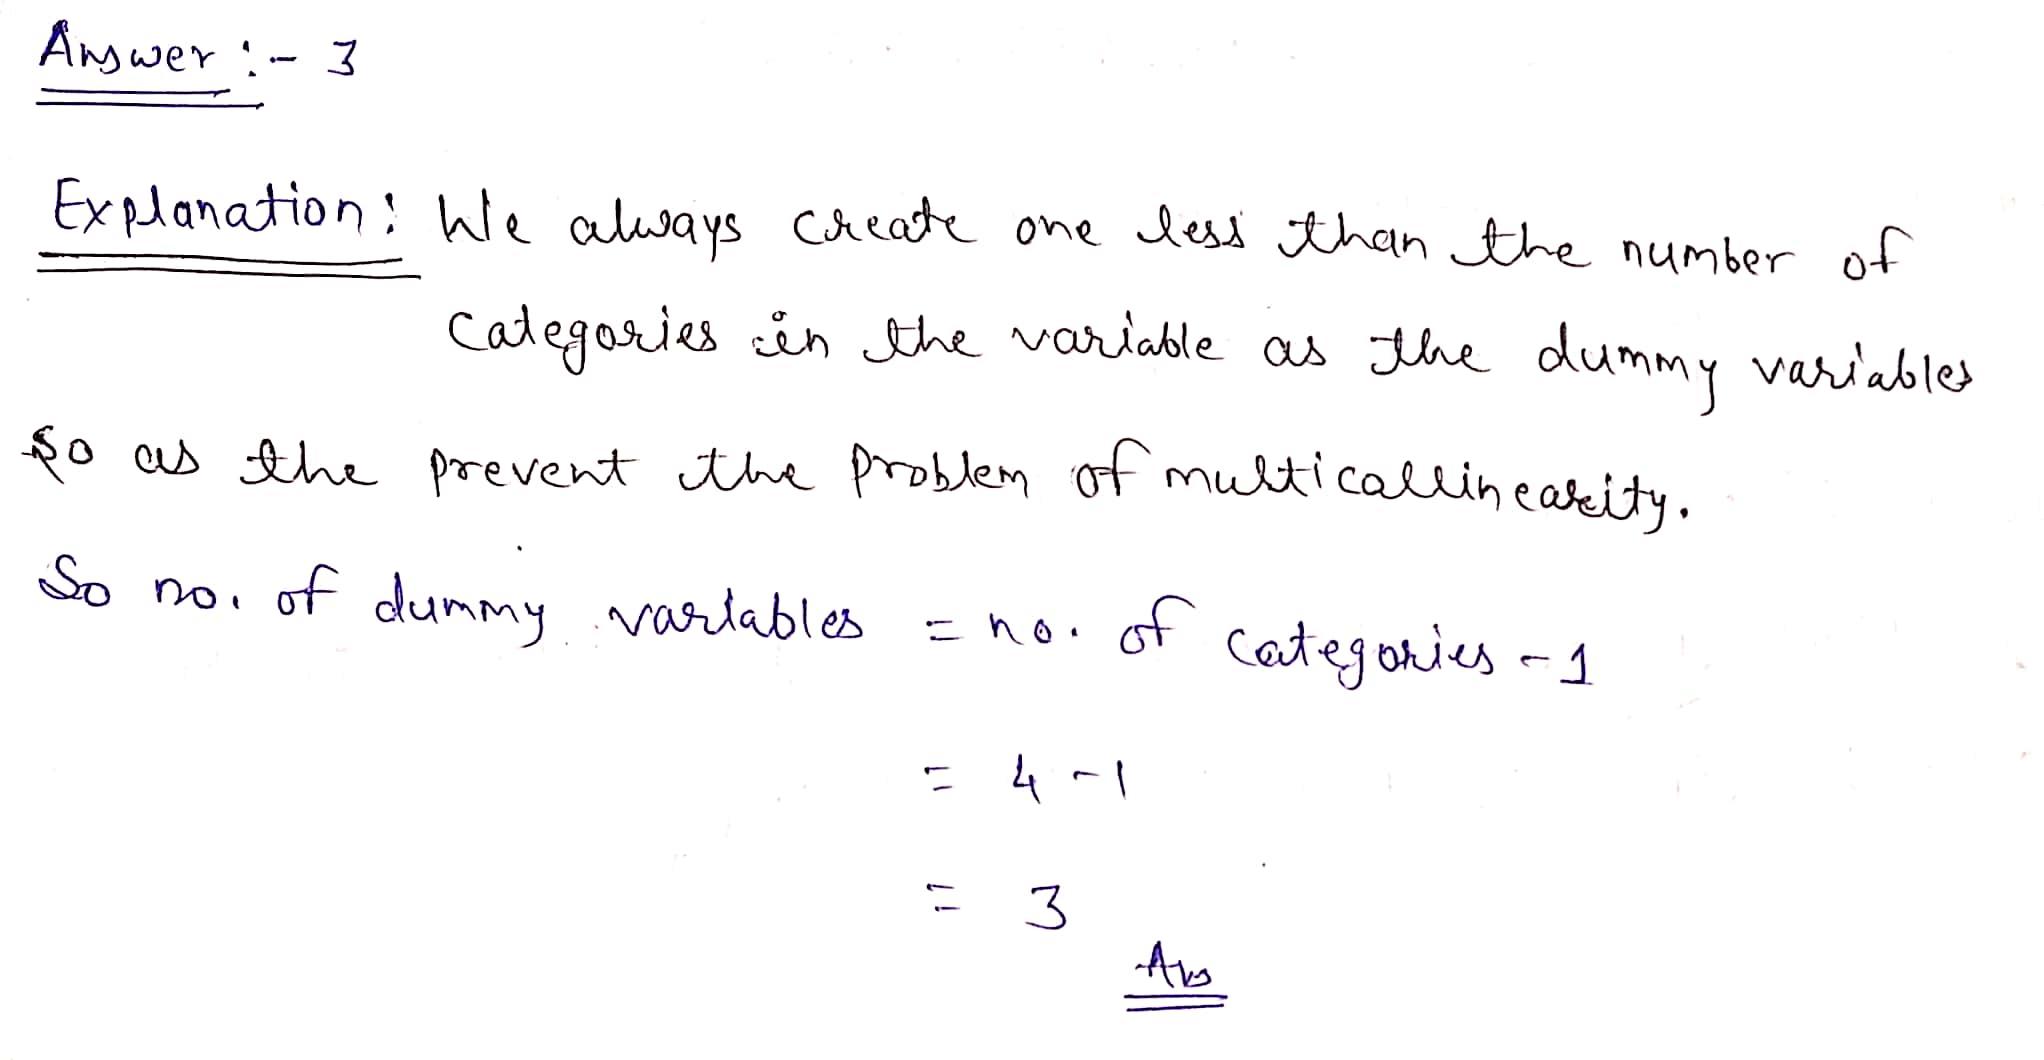 Answer :- 3
Explanation : We always create one less than the number of
categories in the variable as the dummy variables
so as the prevent the problem of multicallinearity.
So no. of dummy variables = no. of categories - 1
= 4 - 1
= 3
Ans